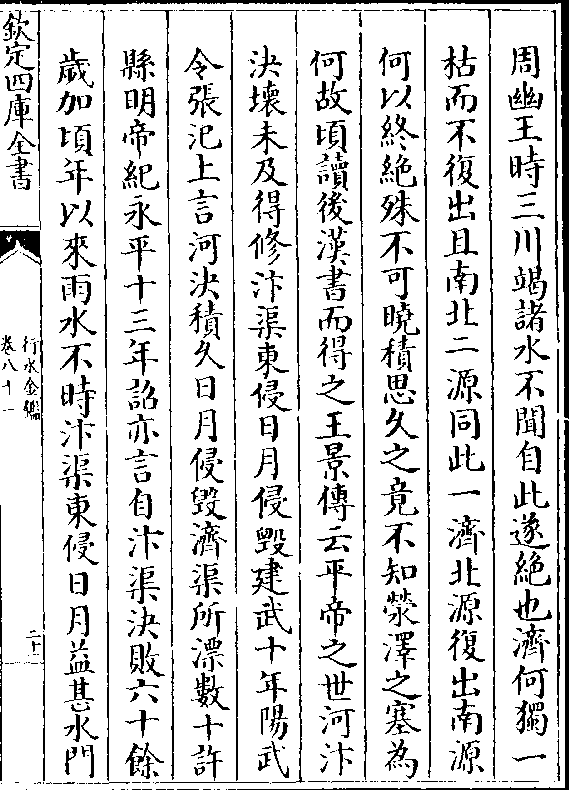 周幽王時三川竭諸水不聞自此遂絶也濟何獨一
枯而不復出且南北二源同此一濟北源復出南源
何以終絶殊不可曉積思久之竟不知滎澤之塞為
何故頃讀後漢書而得之王景傳云平帝之世河汴
決壞未及得修汴渠東侵日月侵毀建武十年陽武
令張汜上言河決積久日月侵毀濟渠所漂數十許
縣明帝紀永平十三年詔亦言自汴渠決敗六十餘
歲加頃年以來雨水不時汴渠東侵日月益甚水門
欽定四庫全書
行水金鑑
卷八十一
二十